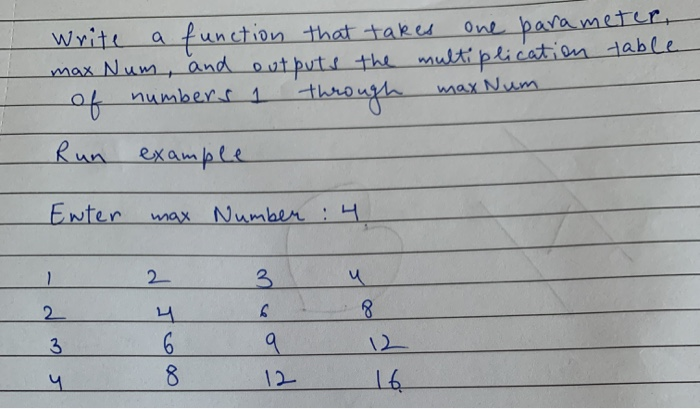 Write a function that takes one parameter,
max Num, and outputs the multiplication table
of numbers 1 through max Num
Run example
Enter max Number : 4
1 2 3 4
2 4 6 8
3 6 9 12
4 8 12 16